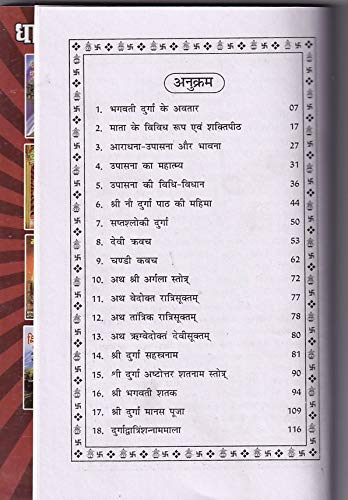 धा
अनुक्रम
1. भगवती दुर्गा के अवतार 07
2. माता के विविध रूप एवं शक्तिपीठ 17
3. आराधना-उपासना और भावना 27
4. उपासना का महात्म्य 31
5. उपासना की विधि-विधान 36
6. श्री नौ दुर्गा पाठ की महिमा 44
7. सप्तश्लोकी दुर्गा 50
8. देवी कवच 53
9. चण्डी कवच 62
10. अथ श्री अर्गला स्तोत्र् 72
11. अथ वेदोक्त रात्रिसूक्तम् 77
12. अथ तांत्रिक रात्रिसूक्तम् 78
13. अथ ऋग्वेदोक्तं देवीसूक्तम् 80
14. श्री दुर्गा सहस्त्रनाम 81
15. श्री दुर्गा अष्टोत्तर शतनाम स्तोत्र् 90
16. श्री भगवती शतक 94
17. श्री दुर्गा मानस पूजा 109
18. दुर्गाद्वात्रिंशन्नाममाला 116